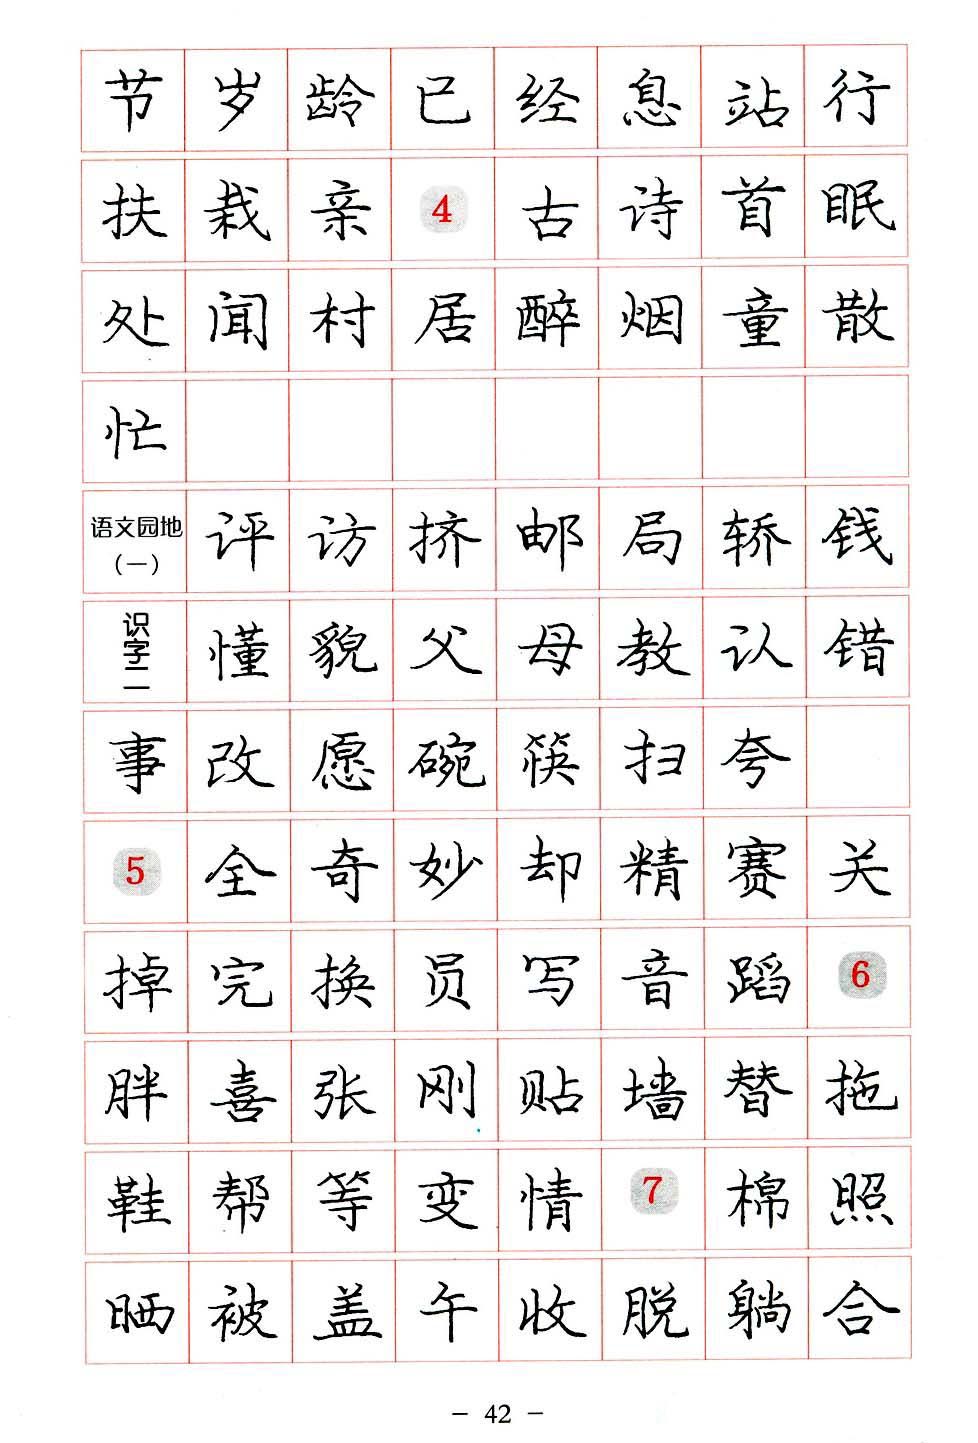 节 岁 龄 已 经 息 站 行
扶 栽 亲 4 古 诗 首 眠
处 闻 村 居 醉 烟 童 散
忙
语文园地（一） 评 访 挤 邮 局 轿 钱
识字二 懂 貌 父 母 教 认 错
事 改 愿 碗 筷 扫 夸
5 全 奇 妙 却 精 赛 关
掉 完 换 员 写 音 蹈 6
胖 喜 张 刚 贴 墙 替 拖
鞋 帮 等 变 情 7 棉 照
晒 被 盖 午 收 脱 躺 合
– 42 –